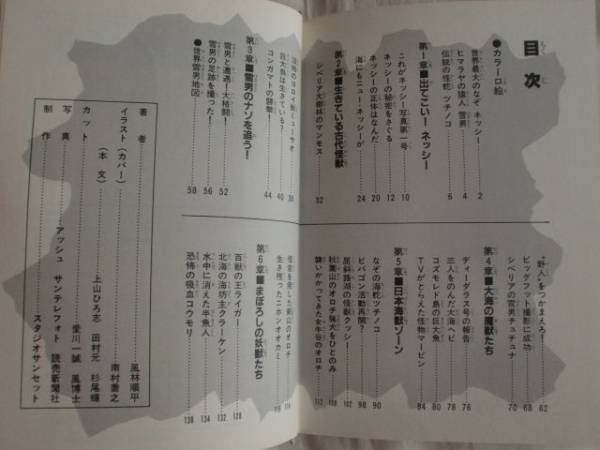 目次
●カラー口絵
世界最大のなぞ ネッシー 2
ヒマラヤの猿人 雪男 4
伝説の怪蛇 ツチノコ 6
第1章■出てこい!ネッシー
これがネッシー写真第一号 10
ネッシーの秘密をさぐる 12
ネッシーの正体はなんだ 20
海にもニュー・ネッシーが 24
第2章■生きている古代怪獣
シベリア大樹林のマンモス 32
巨大鳥は生きている? 40
コンガマトの襲撃! 44
第3章■雪男のナゾを追う!
雪男と遭遇!大格闘! 52
雪男の足跡を撮った! 56
●世界雪男地図 58
“野人”をつかまえろ! 62
ビッグフット撮影に成功 68
シベリアの雪男チュチュナ 70
第4章■大海の魔獣たち
ディーダラス号の報告 76
三人をのんだ大海ヘビ 78
コズモレド島の巨大魚 80
TVがとらえた怪物マービン 84
第5章■日本海獣ゾーン
なぞの海蛇ツチノコ 90
ヒバゴン活動再開? 98
屈斜路湖の怪獣クッシー 102
秋葉山のオロチ猟犬をひとのみ
襲いかかってきた女牛谷のオロチ
怪音を発した剣山のオロチ
生き残ったニホンオオカミ
第6章■まぼろしの妖獣たち
百獣の王ライガー 128
北海の海坊主クラーケン 132
水中に消えた半魚人 134
恐怖の吸血コウモリ 138
著者 風林順平
イラスト(カバー) 南村喬之
(本文) 上山ひろ志 田村元 杉尾輝
カット 愛川一誠 風博士
写真 アッシュ サンテレフォト 読売新聞社
制作 スタジオサンセット